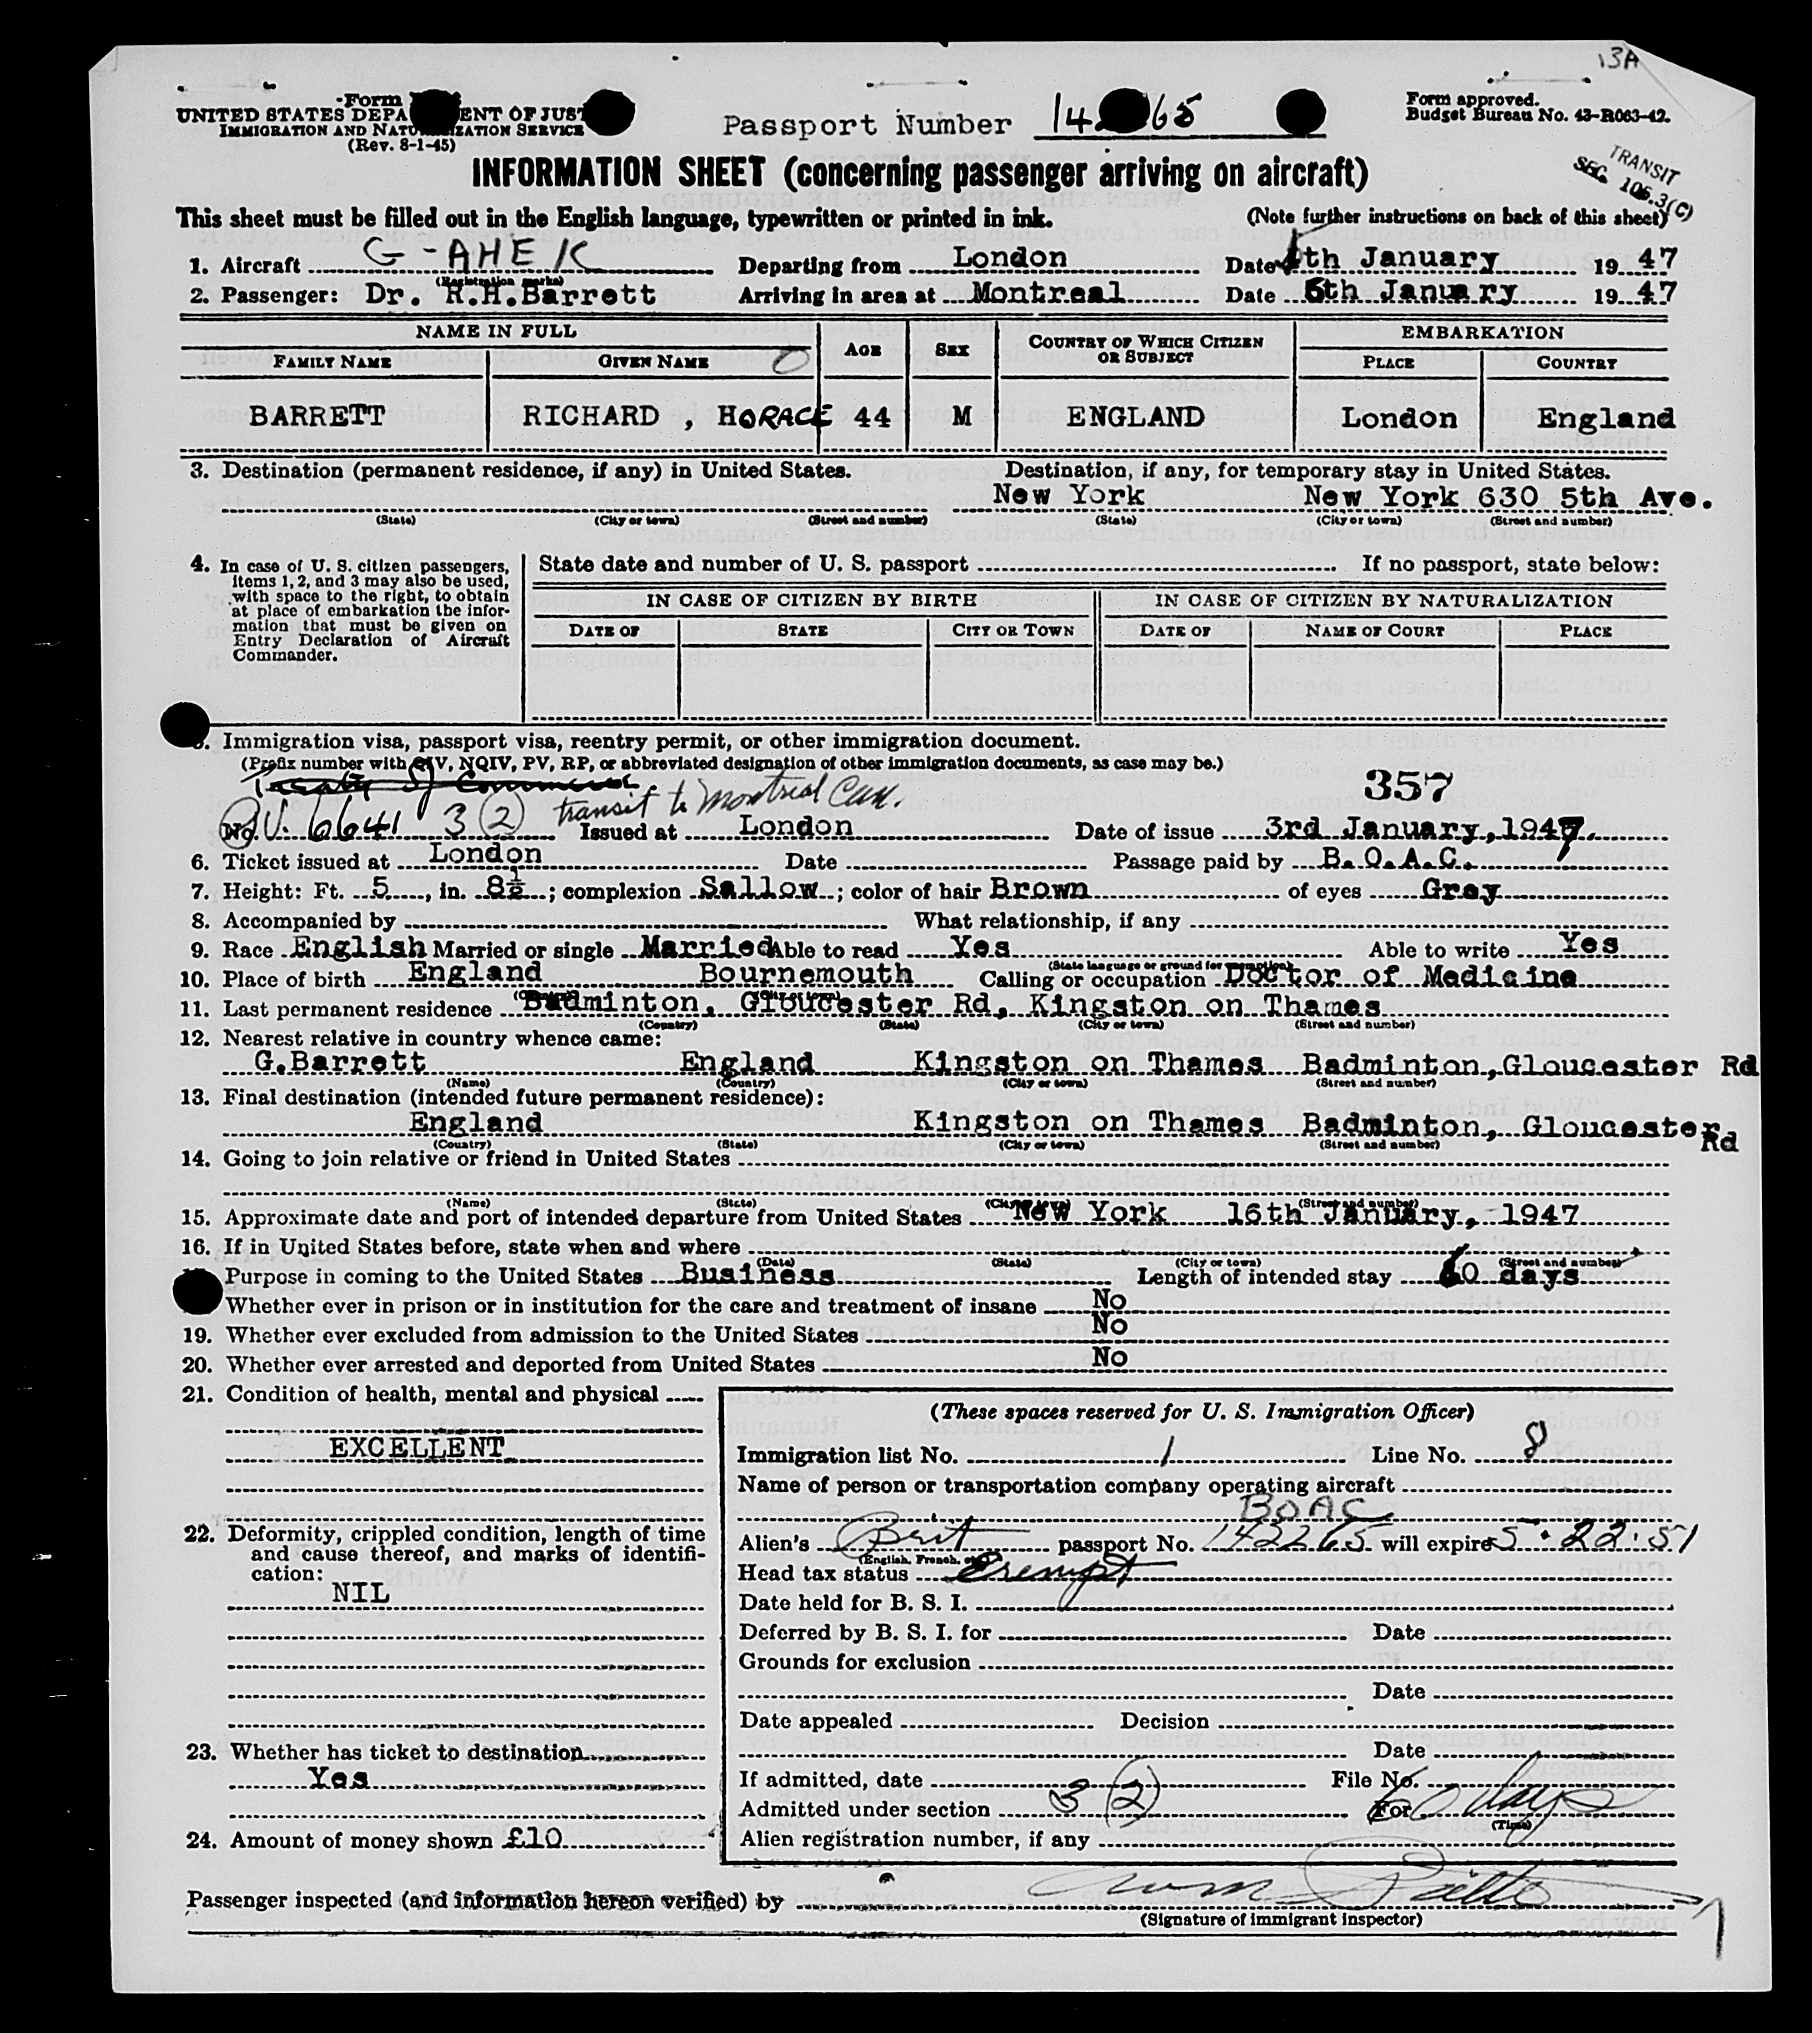 13A
Form
UNITED STATES DEPA ENT OF JUST
IMMIGRATION AND NATURALIZATION SERVICE
(Rev. 8-1-45)
Passport Number 14 65
Form approved.
Budget Bureau No. 43-R063-42.
INFORMATION SHEET (concerning passenger arriving on aircraft)
TRANSIT
SEC. 106.3(C)
This sheet must be filled out in the English language, typewritten or printed in ink. (Note further instructions on back of this sheet)
1. Aircraft G-AHEK Departing from London Date th January 1947
(Registration marks)
2. Passenger: Dr. R.H.Barrett Arriving in area at Montreal Date 6th January 1947
NAME IN FULL AGE SEX COUNTRY OF WHICH CITIZEN OR SUBJECT EMBARKATION
FAMILY NAME GIVEN NAME PLACE COUNTRY
BARRETT RICHARD , HORACE 44 M ENGLAND London England
3. Destination (permanent residence, if any) in United States. Destination, if any, for temporary stay in United States.
New York New York 630 5th Ave.
(State) (City or town) (Street and number) (State) (City or town) (Street and number)
4. In case of U. S. citizen passengers,
items 1, 2, and 3 may also be used,
with space to the right, to obtain
at place of embarkation the infor-
mation that must be given on
Entry Declaration of Aircraft
Commander.
State date and number of U. S. passport If no passport, state below:
IN CASE OF CITIZEN BY BIRTH IN CASE OF CITIZEN BY NATURALIZATION
DATE OF STATE CITY OR TOWN DATE OF NAME OF COURT PLACE
5. Immigration visa, passport visa, reentry permit, or other immigration document.
(Prefix number with QIV, NQIV, PV, RP, or abbreviated designation of other immigration documents, as case may be.)
Treaty of Commerce
transit to Montreal Can. 357
No. V. 6641 3(2) Issued at London Date of issue 3rd January, 1947.
6. Ticket issued at London Date Passage paid by B.O.A.C.
7. Height: Ft. 5, in. 8½; complexion Sallow; color of hair Brown of eyes Grey
8. Accompanied by What relationship, if any
9. Race English Married or single Married Able to read Yes Able to write Yes
(State language or ground for exemption)
10. Place of birth England Bournemouth Calling or occupation Doctor of Medicine
(Country) (City or town)
11. Last permanent residence Badminton, Gloucester Rd, Kingston on Thames
(Country) (State) (City or town) (Street and number)
12. Nearest relative in country whence came:
G.Barrett England Kingston on Thames Badminton,Gloucester Rd
(Name) (Country) (City or town) (Street and number)
13. Final destination (intended future permanent residence):
England Kingston on Thames Badminton, Gloucester Rd
(Country) (State) (City or town) (Street and number)
14. Going to join relative or friend in United States
(Name) (State) (City or town) (Street and number)
15. Approximate date and port of intended departure from United States New York 16th January, 1947
16. If in United States before, state when and where
(Date) (State) (City or town) (Street and number)
Purpose in coming to the United States Business Length of intended stay 60 days
Whether ever in prison or in institution for the care and treatment of insane No
19. Whether ever excluded from admission to the United States No
20. Whether ever arrested and deported from United States No
21. Condition of health, mental and physical
EXCELLENT
22. Deformity, crippled condition, length of time
and cause thereof, and marks of identifi-
cation:
NIL
23. Whether has ticket to destination
Yes
24. Amount of money shown £10
(These spaces reserved for U. S. Immigration Officer)
Immigration list No. 1 Line No. 8
Name of person or transportation company operating aircraft
BOAC
Alien's Brit passport No. 142265 will expire 5.22.51
(English, French, etc.)
Head tax status Exempt
Date held for B. S. I.
Deferred by B. S. I. for Date
Grounds for exclusion
Date
Date appealed Decision
Date
If admitted, date File No.
Admitted under section 3(2) For 60 days
(Time)
Alien registration number, if any
Passenger inspected (and information hereon verified) by
(Signature of immigrant inspector)